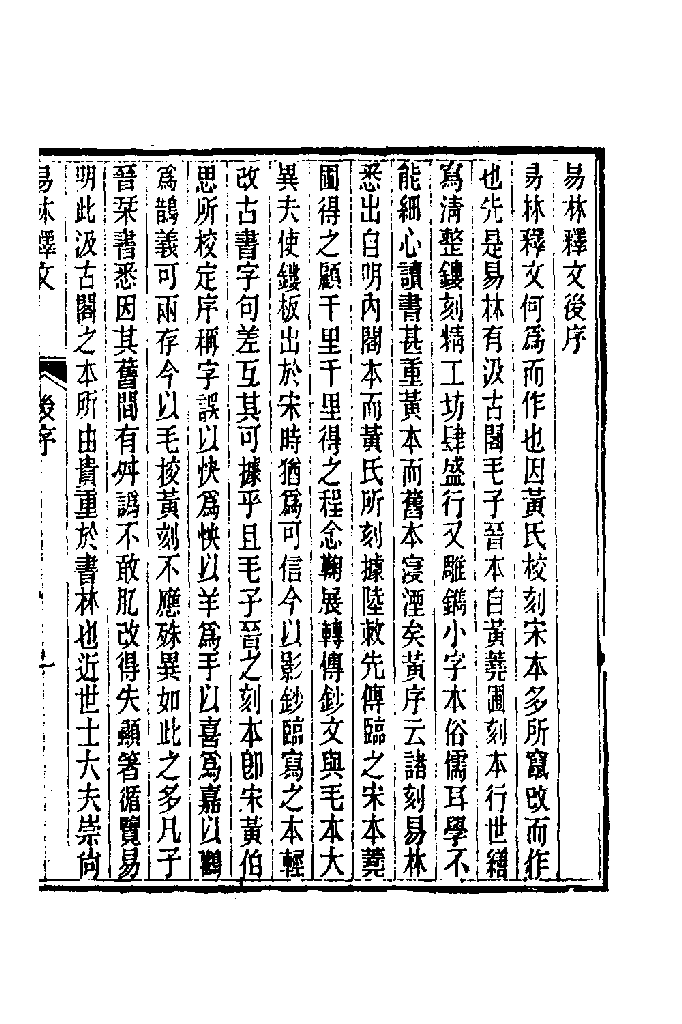 易林釋文後序
易林釋文何爲而作也因黃氏校刻宋本多所竄改而作
也先是易林有汲古閣毛子晉本自黃蕘圃刻本行世繕
寫淸整鏤刻精工坊肆盛行又雕鐫小字本俗儒耳學不
能細心讀書甚重黃本而舊本寖湮矣黃序云諸刻易林
悉出自明內閣本而黃氏所刻據陸敕先傳臨之宋本蕘
圃得之顧千里千里得之程念鞠展轉傳鈔文與毛本大
異夫使鏤板出於宋時猶爲可信今以影鈔臨寫之本輕
改古書字句差互其可據乎且毛子晉之刻本卽宋黃伯
思所校定序稱字誤以快爲怏以羊爲手以喜爲嘉以鸛
爲鵲義可兩存今以毛校黃刻不應殊異如此之多凡子
晉栞書悉因其舊間有舛譌不敢肊改得失顯箸循覽易
明此汲古閣之本所由貴重於書林也近世士大夫崇尙
易林釋文
後序
一